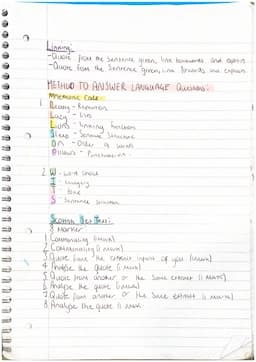 Linking:
-Quote from the sentence given, link backwards and explain
-Quote from the sentence given, link forwards and explain
METHOD TO ANSWER LANGUAGE Questions:
Mnemonic Code
1. Really - Repetition
Lazy - Lists
Lions - linking functions
Sleep - Sentence Structure
On - Order of words
Pillows - Punctuation
2. W - word choice
I - imagery
T - tone
S - Sentence structure
Scottish Set Text:
8 Marker
1. Commonality (1 mark)
2. Commonality (1 mark)
3. Quote from the extract infront of you (1 mark)
4. Analyse the quote (1 mark)
5. Quote from another or the same extract (1 mark)
6. Analyse the quote (1 mark)
7. Quote from another or the same extract (1 mark)
8. Analyse the quote (1 mark